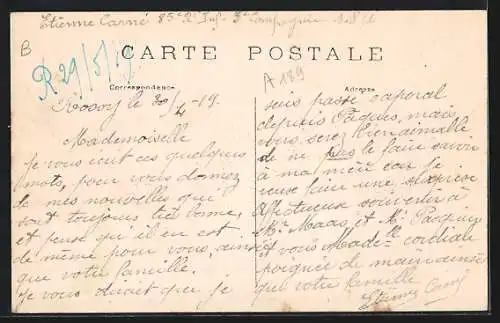 Etienne Carné 85e R. Inf. 3e Compagnie
B
CARTE POSTALE
R 29/5/
A 189
Correspondance
Adresse
Rosoy le 30/4-19.
Mademoiselle
Je vous ecit ces quelques
mots, pour vous donnez
de mes nouvelles qui
sont toujours très bonne,
et pense qu'il en est
de même pour vous, ainsi
que votre famille.
Je vous dirait que je
suis passé caporal
depuis Pâques, mais
vous serez bien aimable
de ne pas le faire savoir
à ma mère car je
veux faire une surprise
Afectueux souvenir à
Mr Maas et Me Pacquy
et vous Made lle cordiale
poignée de main ainsi
que votre famille
Etienne Carné